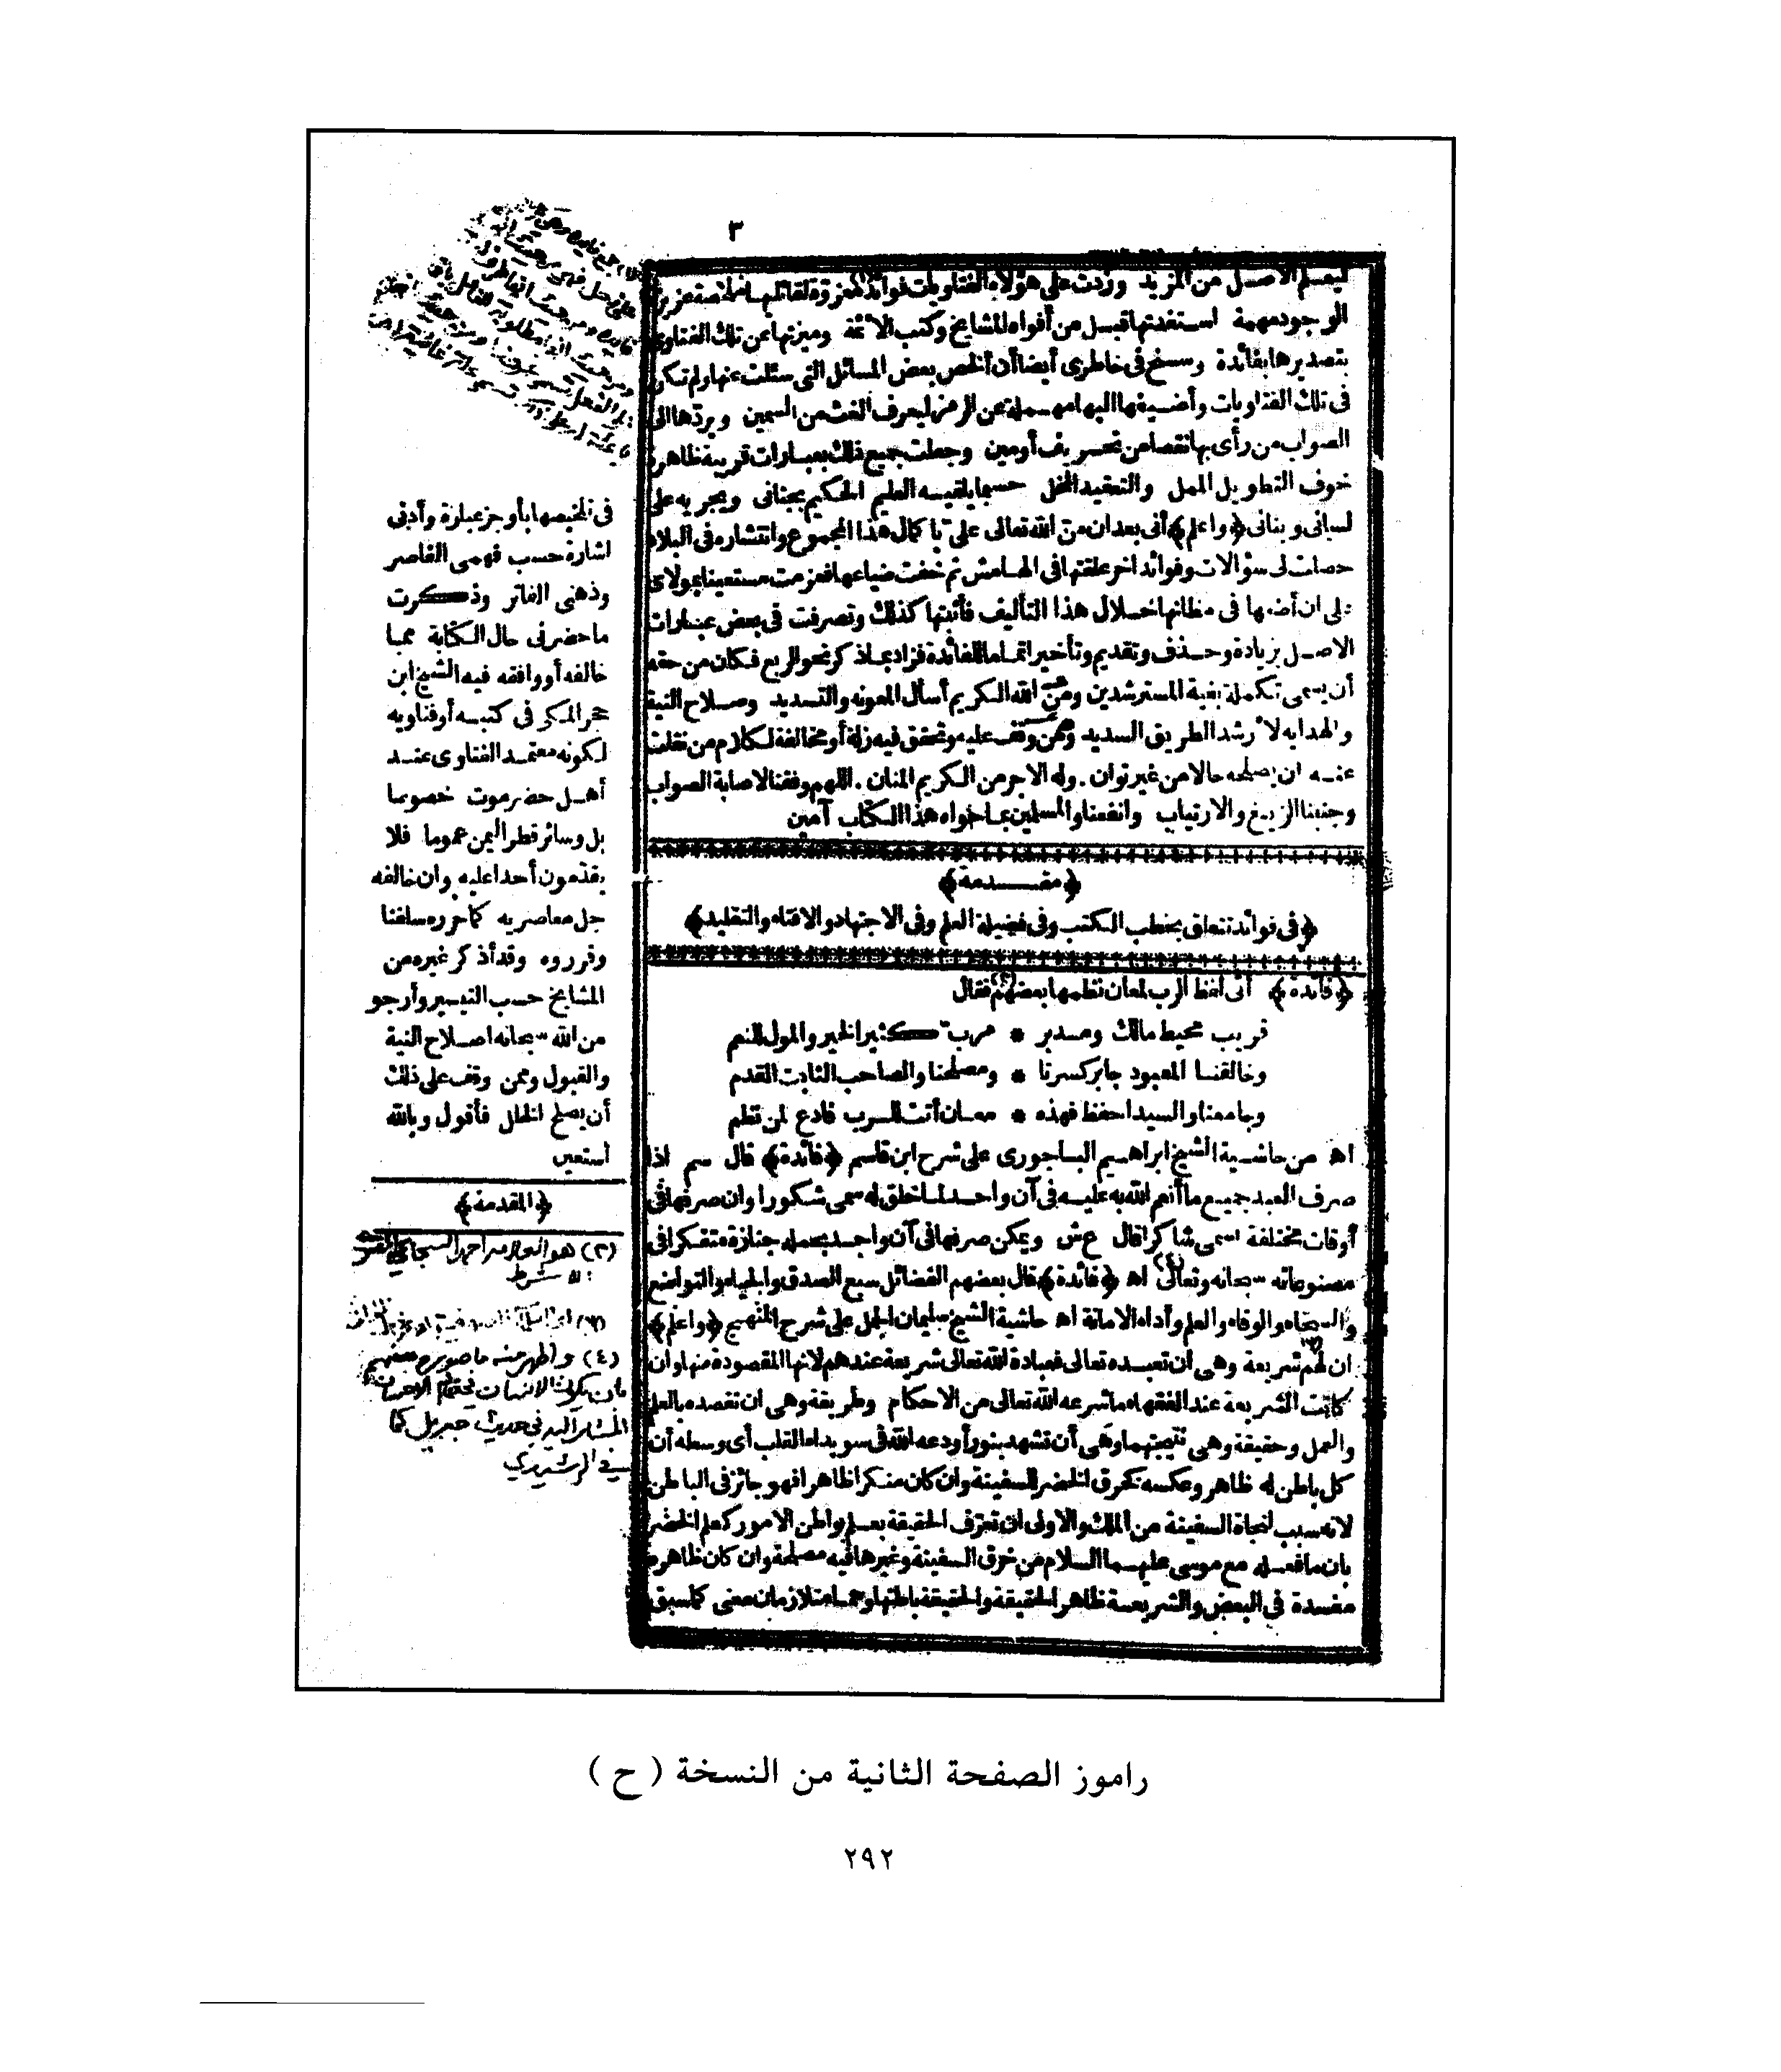 ٣
ليعلم الاصل من المزيد وزدت على هؤلاء الفتاويات فوائد معزوة لقائلها
الوجود مهمة استفدتها قبل من أفواه المشايخ وكتب الأئمة وميزتها عن تلك الفتاوى
بتصديرها بفائدة وسنح فى خاطرى أيضا أن ألخص بعض المسائل التى سئلت عنها ولم تكن
فى تلك الفتاويات وأضيفها اليها مهملة عن الرمز ليعرف الغث من السمين ويردها الى
الصواب من رأى بها نقصا من تحريف أو مين وجعلت جميع ذلك بعبارات قريبة ظاهرة
خوف التطويل الممل والتعقيد المخل حسبما يلقيه العليم الحكيم بجنانى ويجريه على
لسانى وبنانى ﴿واعلم﴾ أنى بعد ان من الله تعالى على باكمال هذا المجموع وانتشاره فى البلاد
حصلت لى سؤالات وفوائد اخر علقتها فى الهامش ثم خفت ضياعها فعزمت مستعينا بمولاى
على ان أضعها فى مظانها خلال هذا التأليف فأثبتها كذلك وتصرفت فى بعض عبارات
الاصل بزيادة وحذف وتقديم وتأخير اتماما للفائدة فزاد بما ذكر نحو الربع فكان من حقه
أن يسمى تكملة بغية المسترشدين ومن الله الكريم أسأل المعونه والتسديد وصلاح النية
والهدايه لأرشد الطريق السديد وممن وقف عليه وتحقق فيه زلة أو مخالفة لكلام من نقلت
عنه ان يصلحه حالا من غير توان . وله الاجر من الكريم المنان . اللهم وفقنا لاصابة الصواب
وجنبنا الزيغ والارتياب وانفعنا والمسلمين بما حواه هذا الكتاب آمين
﴿مقدمة﴾
﴿فى فوائد تتعلق بخطب الكتب وفى فضيلة العلم وفى الاجتهاد والافتاء والتقليد﴾
﴿فائدة﴾ أتى لفظ الرب لمعان نظمها بعضهم فقال
قريب محيط مالك ومدبر * مرب كثير الخير والمول للنعم
وخالقنا المعبود جابر كسرنا * ومصلحنا والصاحب الثابت القدم
وجامعنا والسيد احفظ فهذه * معان أتت للرب فادع لمن نظم
اه من حاشية الشيخ ابراهيم الباجورى على شرح ابن قاسم ﴿فائدة﴾ قال سم اذا
صرف العبد جميع ما أنعم الله به عليه فى آن واحد لما خلق له سمى شكورا وان صرفها فى
أوقات مختلفة سمى شاكرا قال ع ش ويمكن صرفها فى آن واحد بحمله جنازة متفكرا فى
مصنوعاته سبحانه وتعالى اه ﴿فائدة﴾ قال بعضهم الفضائل سبع الصدق والحياء والتواضع
والسخاء والوفاء والعلم وأداء الامانة اه حاشية الشيخ سليمان الجمل على شرح المنهج ﴿واعلم﴾
ان لهم شريعة وهى ان تعبده تعالى فعبادة الله تعالى شريعة عندهم لانها المقصودة منها وان
كانت الشريعة عند الفقهاء ما شرعه الله تعالى من الاحكام وطريقة وهى ان تقصده بالعلم
والعمل وحقيقة وهى نتيجتهما وهى أن تشهد بنور أودعه الله فى سويداء القلب أى وسطه أن
كل باطن له ظاهر وعكسه كخرق الخضر السفينة وان كان منكرا ظاهرا فهو جائز فى الباطن
لانه سبب لنجاة السفينة من الملك والاولى ان تعرف الحقيقة بعلم بواطن الامور كعلم الخضر
بان ما فعله مع موسى عليهما السلام من خرق السفينة وغيرها فيه مصلحة وان كان ظاهره
مفسدة فى البعض والشريعة ظاهر الحقيقة والحقيقة باطنها وهما متلازمان معنى كما سبق
فى تلخيصها بأوجز عبارة وأدنى
اشارة حسب فهمى القاصر
وذهنى الفاتر وذكرت
ما حضرنى حال الكتابة مما
خالفه أو وافقه فيه الشيخ ابن
حجر المكى فى كتبه أو فتاويه
لكونه معتمد الفتاوى عند
أهل حضرموت خصوصا
بل وسائر قطر اليمن عموما فلا
يقدمون أحدا عليه وان خالفه
جل معاصريه كما حرره سلفنا
وقرروه وقد أذكر غيره من
المشايخ حسب التيسير وأرجو
من الله سبحانه اصلاح النية
والقبول وممن وقف على ذلك
أن يصلح الخلل فأقول وبالله
أستعين
﴿المقدمة﴾
(٢) هو العلامه احمد السجاعي
(٤) واظهر منه ما صوره بعضهم
بان يكون الانسان في مقام الاحسان
المشار اليه في حديث جبريل كما
في الرشيدي
راموز الصفحة الثانية من النسخة ( ح )
٢٩٢